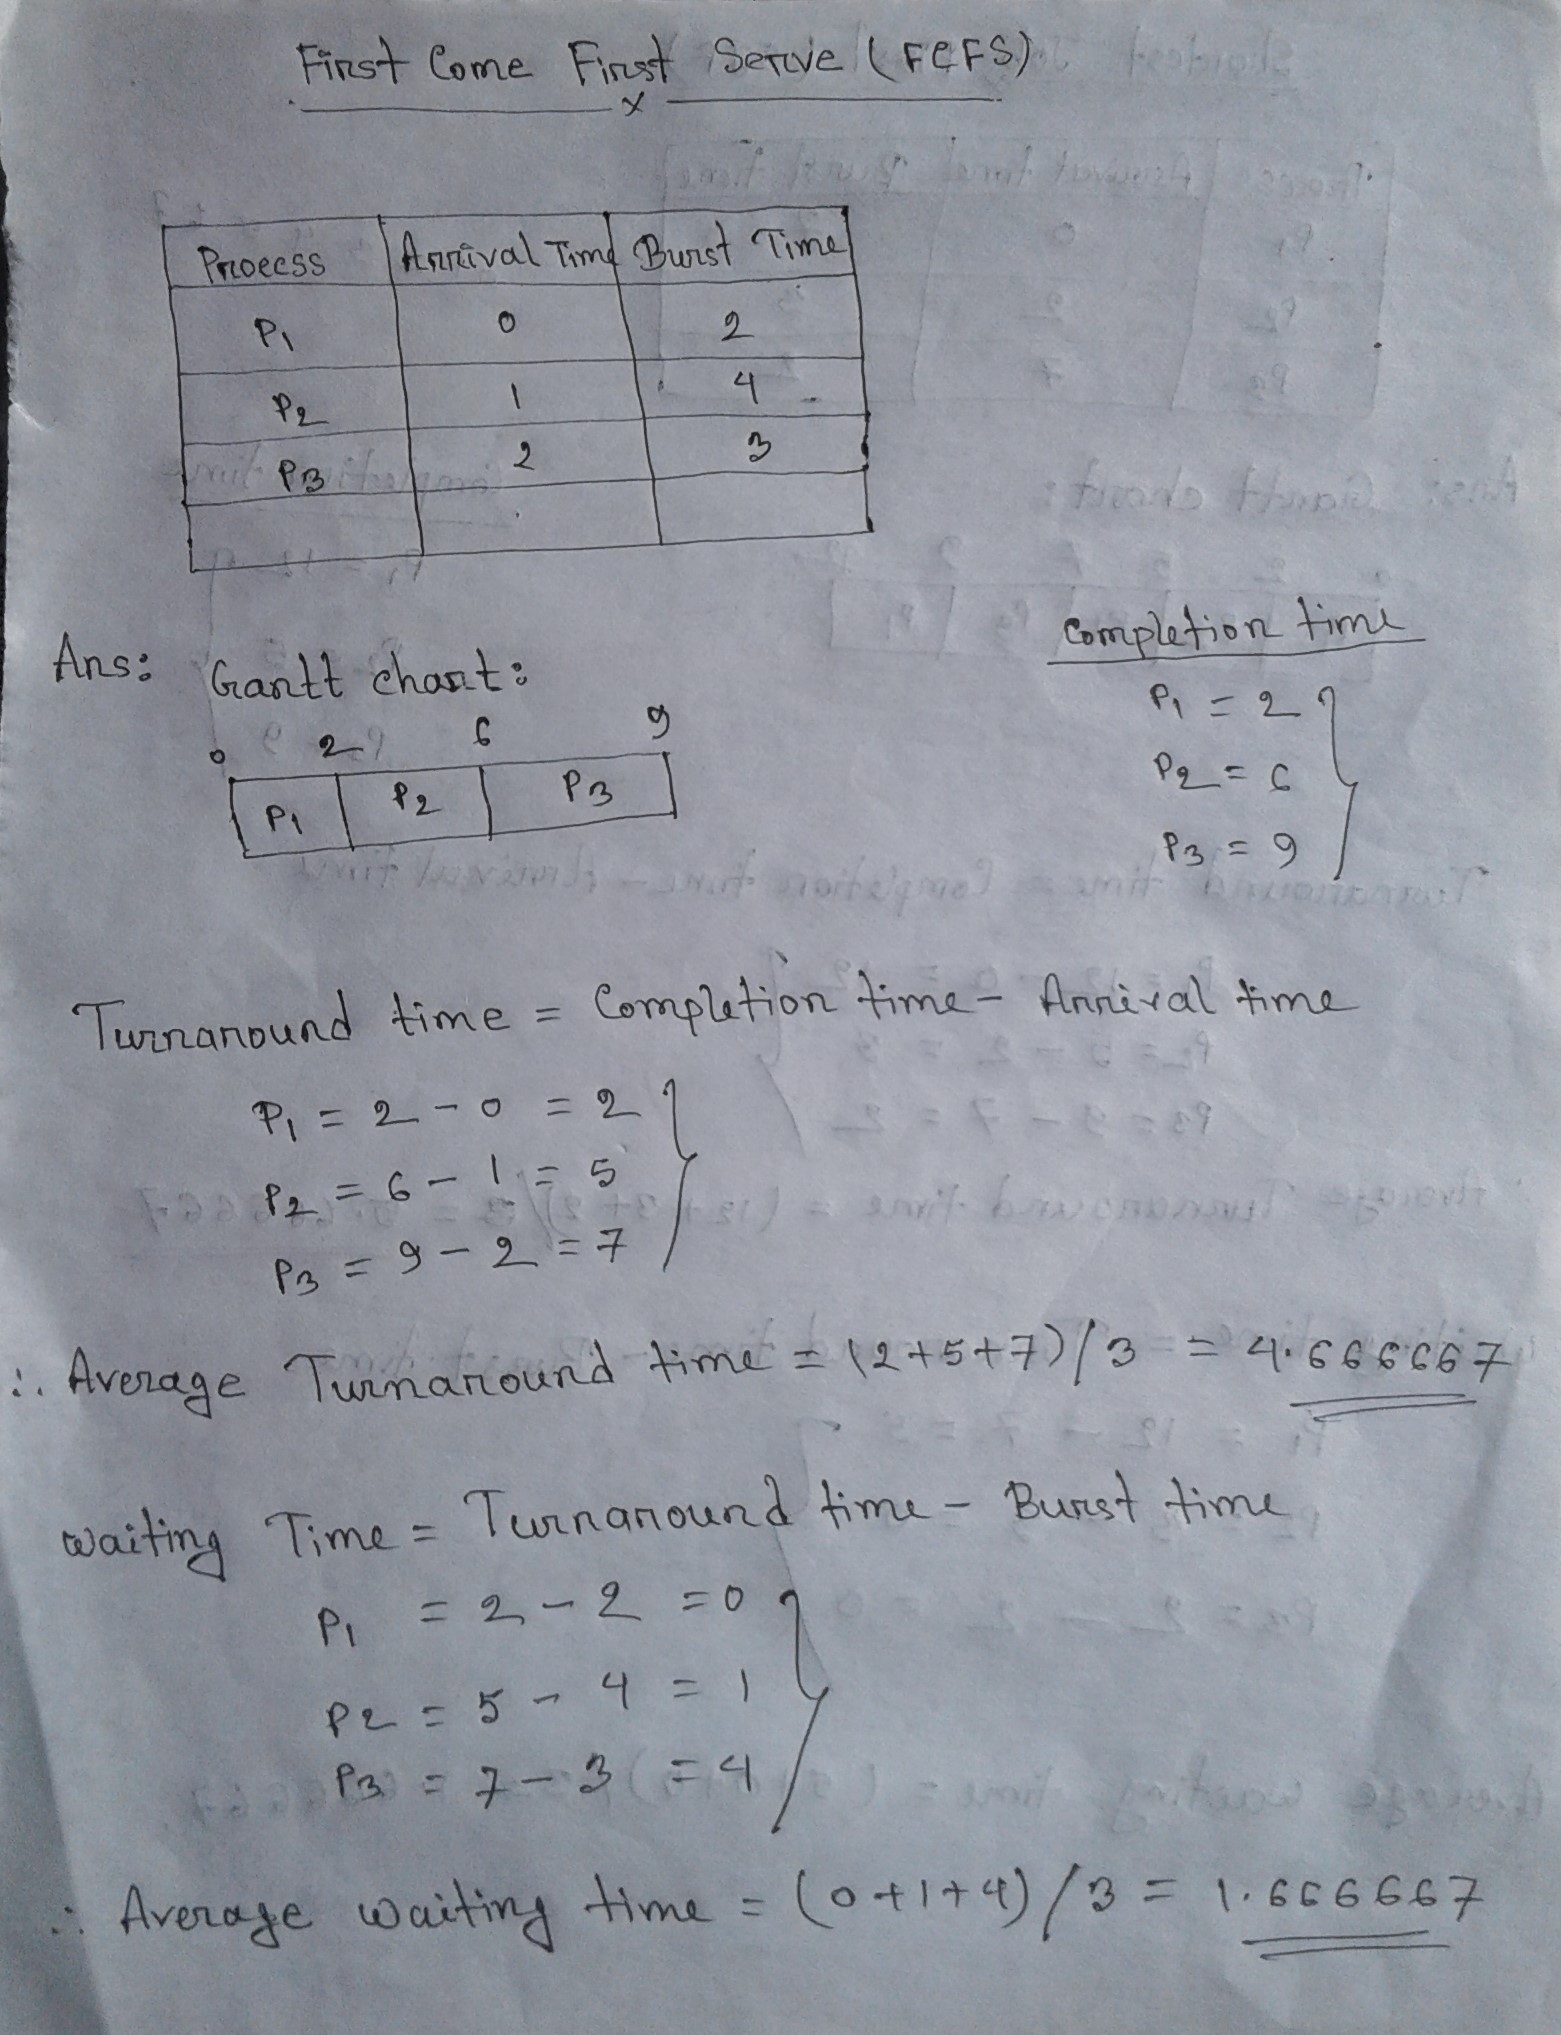 First Come First Serve (FCFS)
x
Process Arrival Time Burst Time
P1 0 2
P2 1 4
P3 2 3
Ans: Gantt chart:
0 2 6 9
P1 P2 P3
Completion time
P1 = 2
P2 = 6
P3 = 9
Turnaround time = Completion time - Arrival time
P1 = 2 - 0 = 2
P2 = 6 - 1 = 5
P3 = 9 - 2 = 7
∴ Average Turnaround time = (2+5+7)/3 = 4.666667
Waiting Time = Turnaround time - Burst time
P1 = 2 - 2 = 0
P2 = 5 - 4 = 1
P3 = 7 - 3 = 4
∴ Average waiting time = (0+1+4)/3 = 1.666667